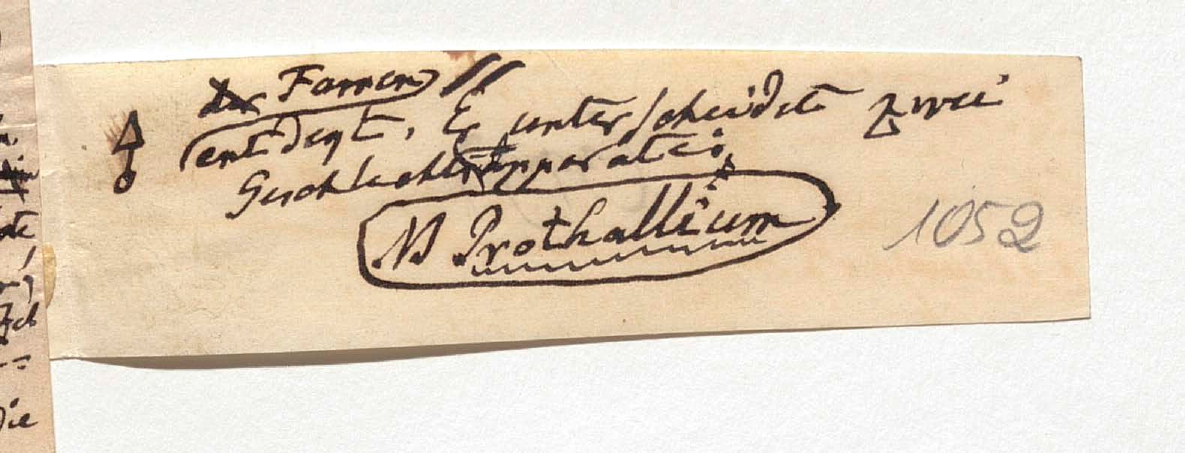 der Farren
entdeqt. Er unterscheidet zwei
Geschlechtsapparate:
NB Prothallium
1052